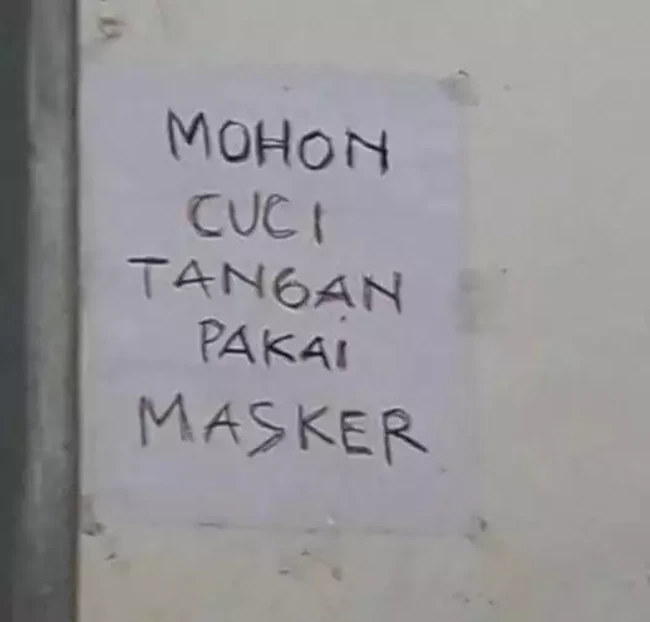 MOHON
CUCI
TANGAN
PAKAI
MASKER